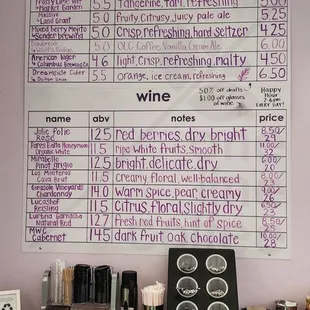 Market Garden 5.5 tangerine, tart, refreshing 5.00
Land Grant 5.0 fruity, citrusy, juicy pale ale 5.25
Mixed berry Mojito
Sonder brewing 5.0 Crisp, refreshing, hard seltzer 4.25
5.0 OLG Coffee, Vanilla Cream Ale 6.00
American lager
Columbus Brewing 4.6 light, crisp, refreshing, malty 4.50
Dreamsicle Cider 5.5 orange, ice cream, refreshing 6.50
wine
50% off drafts
$1.00 off glasses of wine
Happy Hour
EVERY DAY!
name abv notes price
Jolie folie
Rosé 12.5 red berries, dry, bright 8.50/29
Organic White 11.5 ripe white fruits, smooth 11.00/32
Mirabello
Pinot Grigio 12.5 bright, delicate, dry 6.00/20
Los Monteros
Cava Brut 11.5 creamy, floral, well-balanced
Girasole Vineyards
Chardonnay 14.0 warm spice, pear, creamy
Lucashof
Reisling 11.5 Citrus, floral, slightly dry
Garnacha
Natural Red 12.7 fresh red fruits, hint of spice 8.50/29
MWC
Cabernet 14.5 dark fruit, oak, chocolate 10.00/28